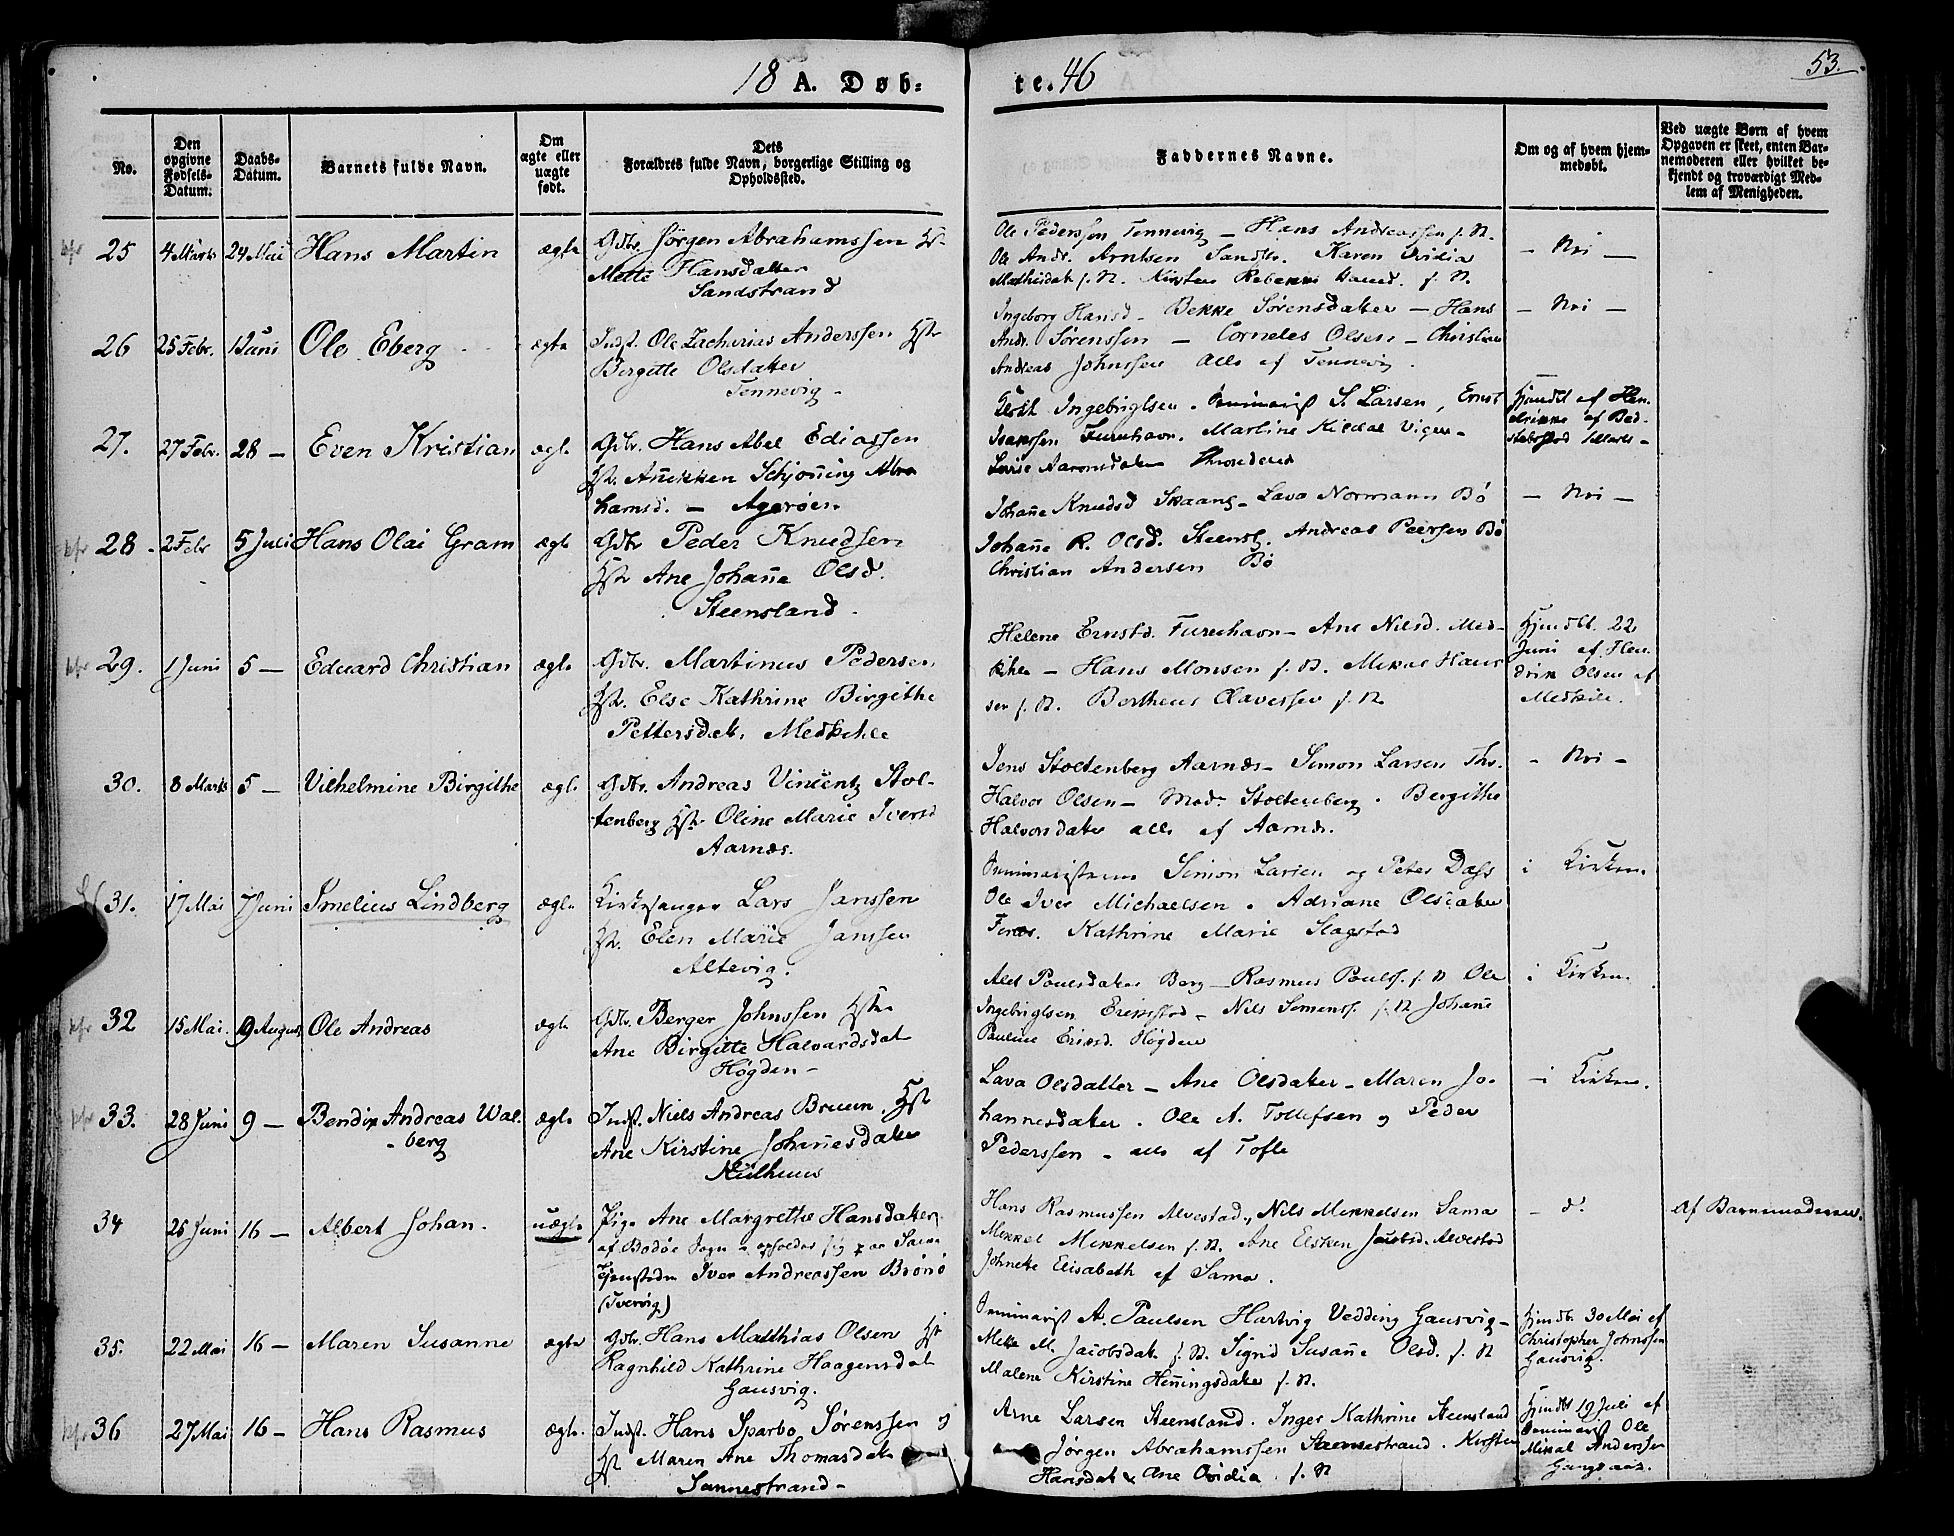 53.
18 A. Døb= te. 46
No.
Den opgivne Fødsels-Datum.
Daabs-Datum.
Barnets fulde Navn.
Om ægte eller uægte født.
Dets Forældres fulde Navn, borgerlige Stilling og Opholdssted.
Faddernes Navne.
Om og af hvem hjem-medøbt.
Ved uægte Børn af hvem Opgaven er skeet, enten Bar-nemoderen eller hvilket be-kjendt og troværdigt Med-lem af Menigheden.
25 4 Marts 24 Mai Hans Martin ægte
Gdbr. Jørgen Abrahamssen Hst.
Mette Hansdatter
Sandstrand
Ole Pederssen Tennevig – Hans Andreassen f. St.
Ole Andr. Arntsen Sandstr. Karen Ovidia
Mathisdat f. St. Kirsten Rebekka f. St.
– Nei –
26 25 Febr. 1 Juni Ole Eberg ægte
Indst. Ole Zacharias Anderssen Hstr
Birgitte Olsdatter
Tennevig –
Ingeborg Hansd – Bekke Sørensdatter – Hans
Andr. Sørenssen – Cornelus Olsen – Christian
Andreas Johnssen alle af Tennevig.
– Nei –
27. 27 Febr. 28 – Even Kristian ægte
Gdbr. Hans Abel Ediassen
Hst. Anikken Schjønning Abra
hamsd. – Agerøen
Ingebrigtsen. Seminarist S. Larsen, Ernst
Isakssen Furuhavn. Martine Kildal Vigen –
Aaronsdatter
Hjemdøbt af Hen-
drikke af Bed-
28 2 Febr 5 Juli Hans Olai Gram ægte
Gdbr Peder Knudsen
Hstr Ane Johanne Olsd.
Steensland.
Johanne Knudsd Skaang – Lava Normann Bø
Johanne R. Olsd. Steensl. Andreas Peersen Bø
Christian Andersen Bø
– Nei –
29. 1 Juni 5 – Eduard Christian ægte
Gdbr. Martinus Pedersen
Hst. Else Kathrine Birgithe
Pettersdat. Medkihle
Helene Ernstd. Furuhavn – Ane Nilsd. Med-
kihle – Hans Monsen f. St. Mikal Hans
sen f. St. Bertheus Olavesser f. St.
Hjemdbt. 22
Juni af Hen-
drik Olsen af
Medkile.
30. 8 Marts 5 – Vilhelmine Birgithe ægte
Gdbr. Andreas Vincentz Stol-
tenberg Hstr Oline Marie Iversd
Aarnæs.
Jens Stoltenberg Aarnæs – Simon Larsen
Halvor Olsen – Mad. Stoltenberg. Bergithe
Halvorsdatter alle af Aarnæs.
– Nei –
31. 17 Mai 7 Juni Smelius Lindberg ægte
Kirkesanger Lars Janssen
Hst. Elen Marie Janssen
Altevig.
Seminaristerne Simon Larsen og Peter Dass
Ole Iver Michaelsen. Adriane Olsdatter
Kathrine Marie Slagstad
i Kirken.
32 15 Mai. 9 August Ole Andreas ægte
Gdbr. Berger Johnssen Hstr
Ane Birgitte Halvardsdat
Høgden –
Alet Paulsdatter Berg – Rasmus Paulss. f. St Ole
Ingebrigtsen – Nils Simonss. f. St Johanne
Pauline Ericsd. Høgden
i Kirken.
33. 28 Juni 9 – Bendix Andreas Wal-
berg ægte
Indst. Niels Andreas Bruun Hst
Ane Kirstine Johannesdatter
Lava Olsdatter – Ane Olsdatter – Maren Jo-
hannesdatter. Ole A. Tollefsen og Peder
Pederssen – alle af Tofle
– i Kirken.
34 25 Juni 16 – Albert Johan. uægte
Pige Ane Margrethe Hansdatter
af Bodøe Sogn opholder sig paa Sama
Tjenestedr Iver Andreassen
Hans Rasmussen Alvestad, Nils Mikkelsen Sama
Mikkel Mikkelsen f. St. Ane Elsken Jacobsd. Alvestad
Johneke Elisabeth af Sama.
– do.
Af Barnemoderen.
35. 22 Mai 16 – Maren Susanne ægte
Gdbr. Hans Matthias Olsen Hst
Ragnhild Kathrine Haagensdat
Gausvig.
Seminarist A. Paulsen Hartvig Vedding Gausvig –
M. Jacobsdat f. St. Sigrid Susanne Olsd. f. St
Malene Kirstine Henningsdatter f. St.
Hjemdbt 30 Mai af
Christopher Johnssen
Gausvig.
36 27 Mai 16 – Hans Rasmus ægte.
Indst. Hans Sparbo Sørenssen og
Hst Maren Ane Thomasdat
Sannestrand –
Arne Larsen Steensland. Inger Kathrine Steensland
Jørgen Abrahamssen Sannestrand. Kirsten
Hansdat & Ane Ovidia f. St
Hjemdbt 19 Juli af
Seminarist Ole
Mikal Anderssen
Gangsaas.